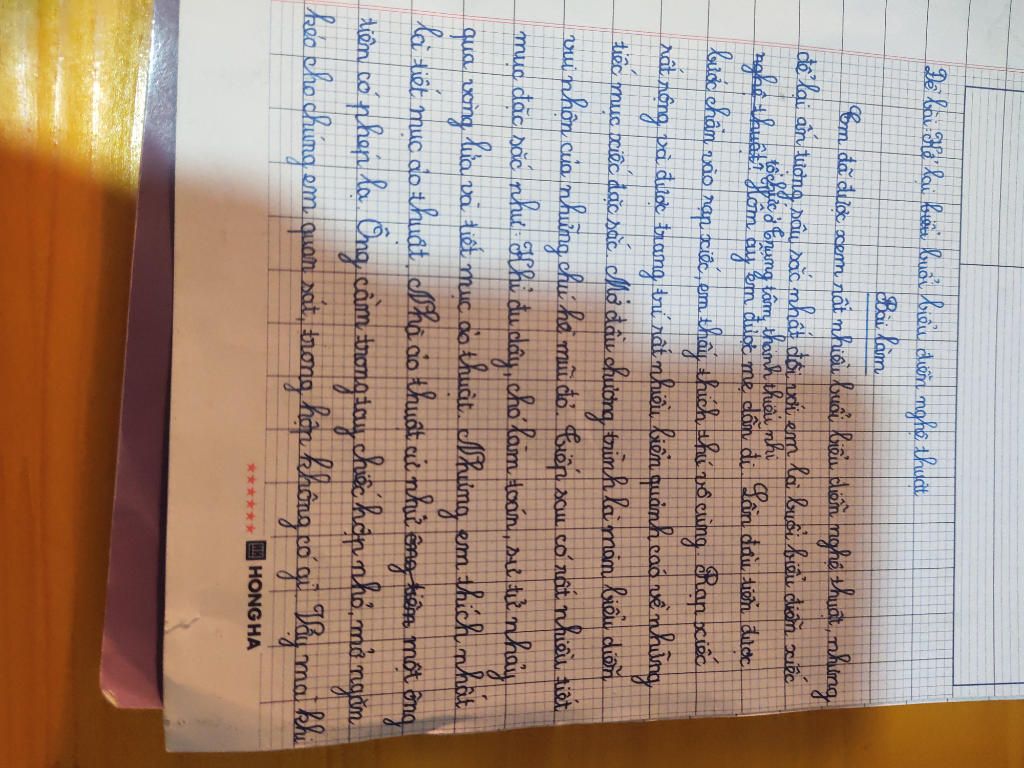 Đề bài: Kể lại buổi biểu diễn nghệ thuật
Bài làm
Em đã được xem rất nhiều buổi biểu diễn nghệ thuật, nhưng
để lại ấn tượng sâu sắc nhất đối với em là buổi biểu diễn xiếc
tổ chức ở Trung tâm thanh thiếu nhi
nghệ thuật. Hôm ấy em được mẹ dẫn đi. Lần đầu tiên được
bước chân vào rạp xiếc, em thấy thích thú vô cùng. Rạp xiếc
rất rộng và được trang trí rất nhiều biển quảnh cáo về những
tiếc mục xiếc đặc sắc. Mở đầu chương trình là màn biểu diễn
vui nhộn của những chú hề mũi đỏ. Tiếp sau có rất nhiều tiết
mục đặc sắc như: Khỉ đi dây, chó làm toán, sư tử nhảy
qua vòng lửa và tiết mục ảo thuật. Nhưng em thích nhất
là tiết mục ảo thuật. Nhà ảo thuật cứ như ông tiên một ông
tiên có phép lạ. Ông cầm trong tay chiếc hộp nhỏ, mở ngăn
kéo cho chúng em quan sát, trong hộp không có gì. Vậy mà khi
HONG HA